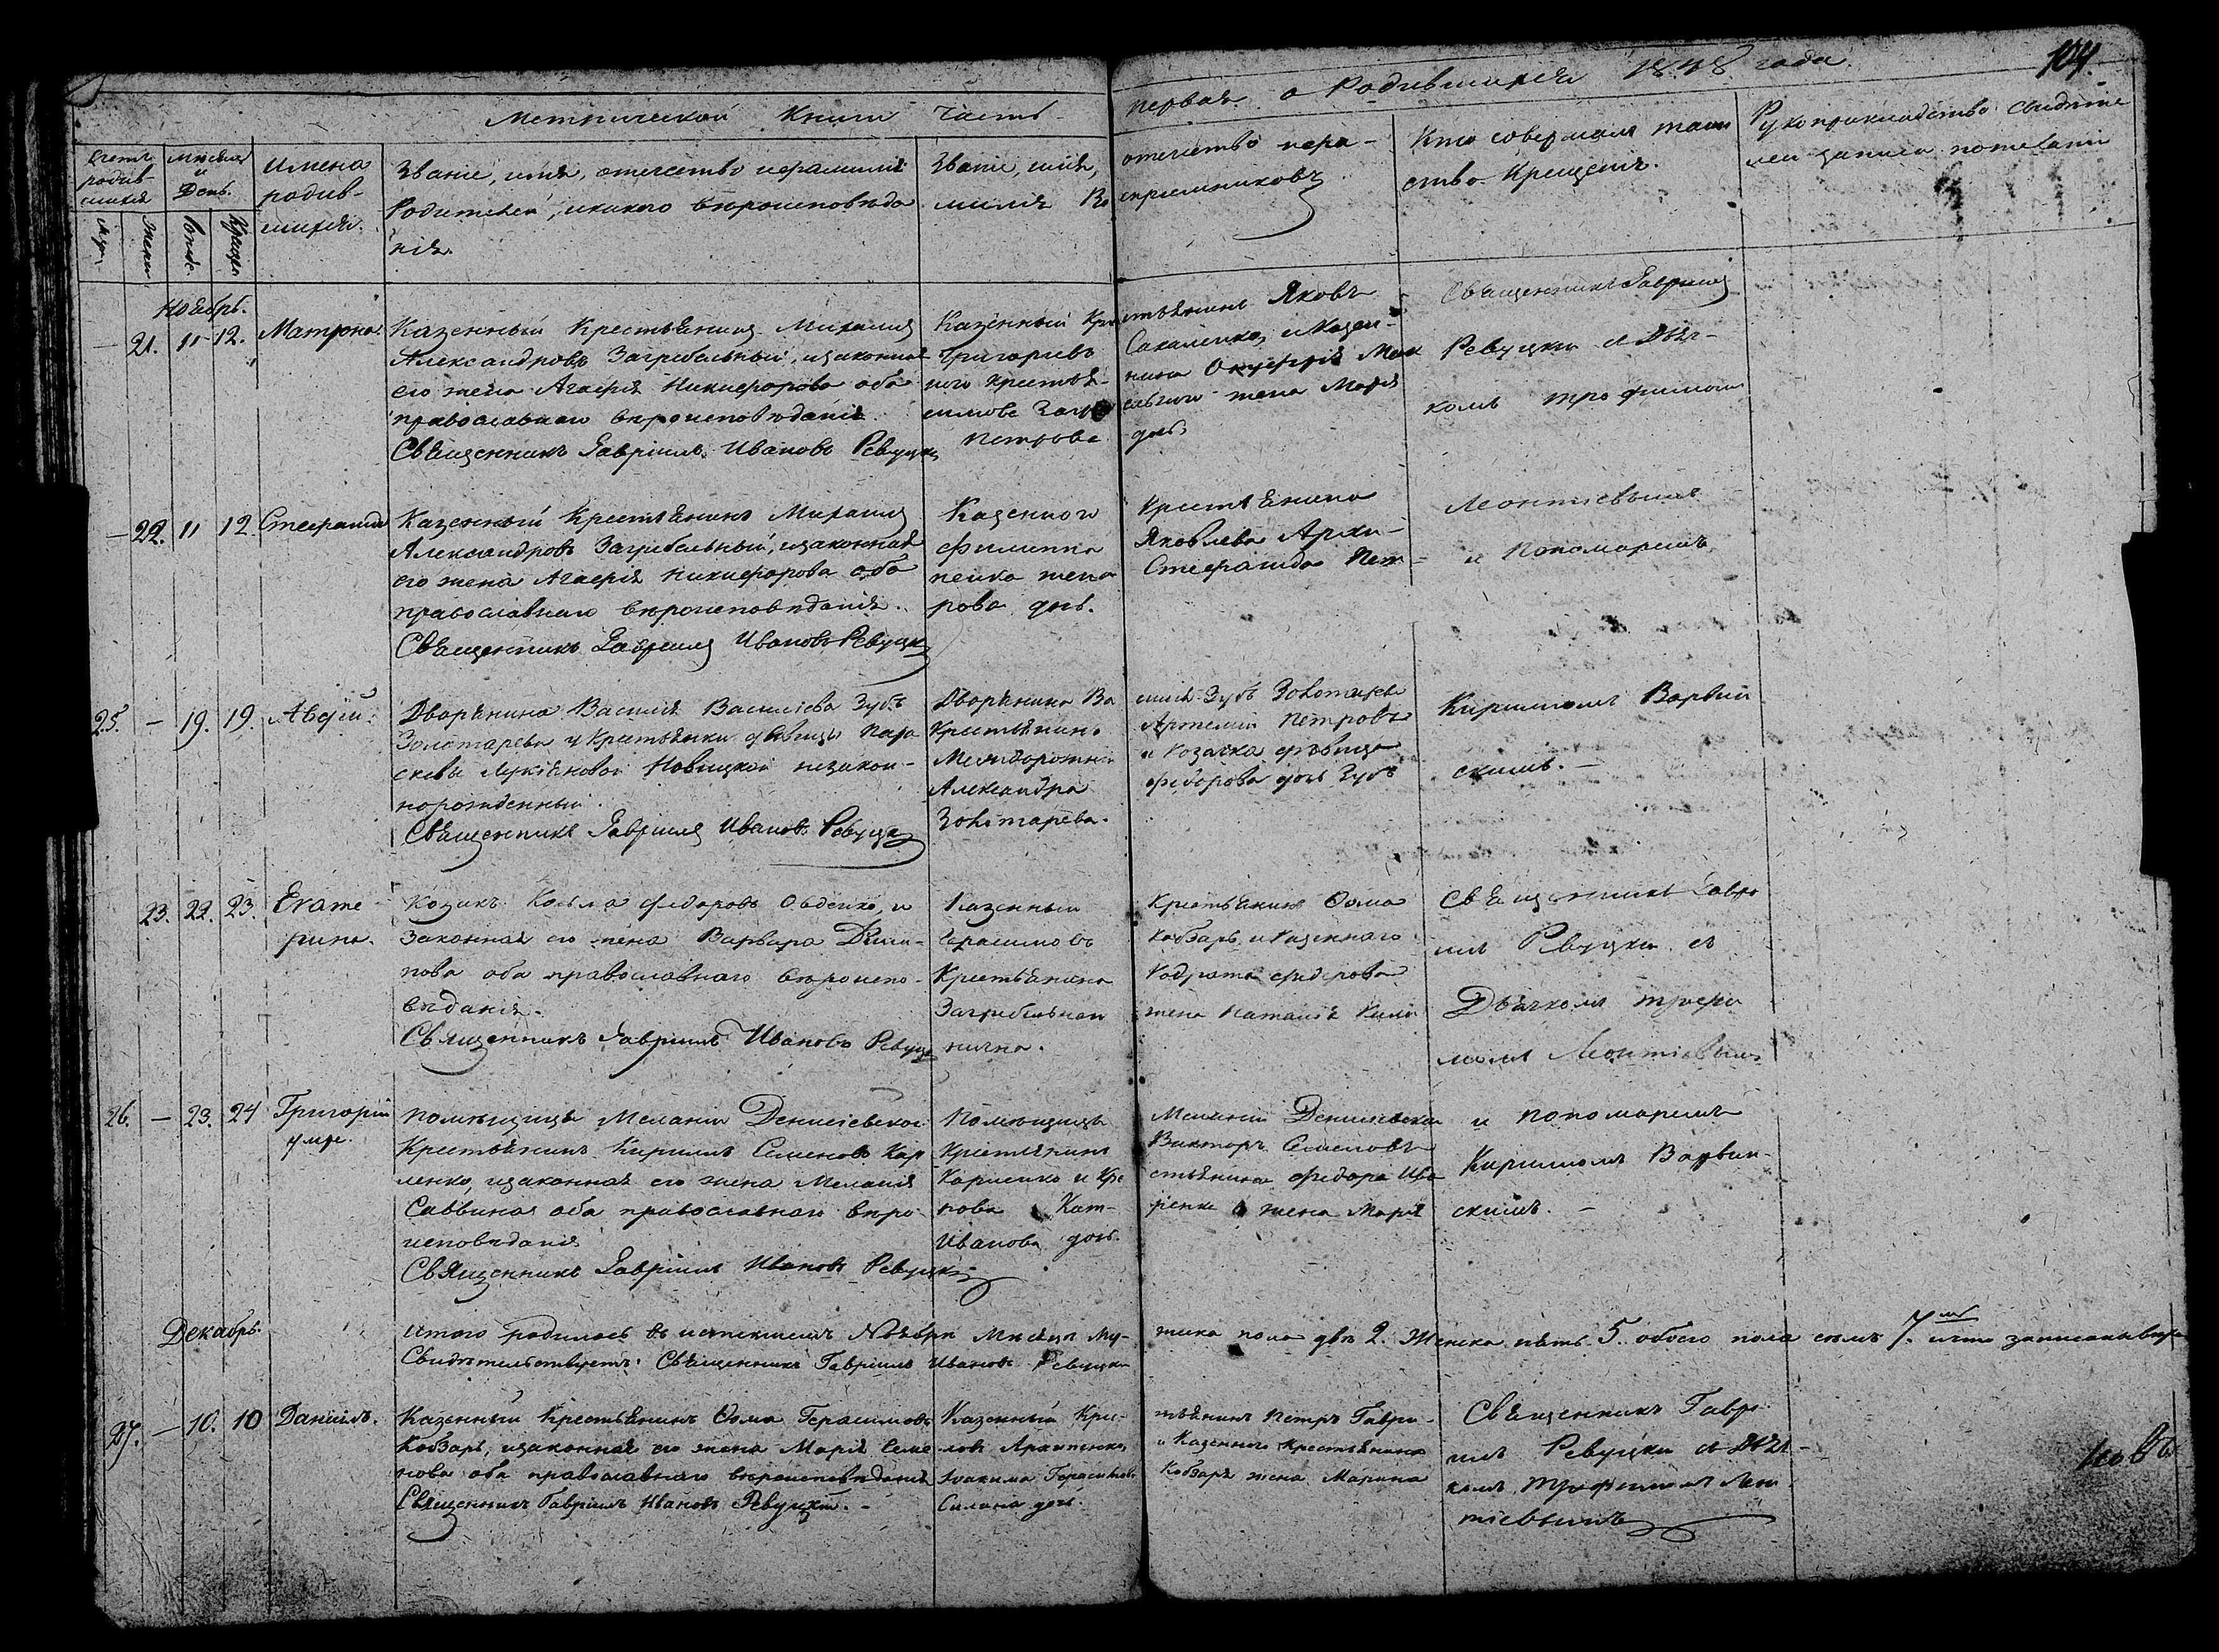 104.
Метрической Книги Часть первая о Родившихся 1848 года
Счетъ родив-
шихся
Месяцъ
и
День.
Имена
родив-
шихся.
Званіе, имя, отчество и фамилія
Родителей, и какого вероисповеда
нія.
Званіе, имя, отечество и фа-
милія Воспріемниковъ
Кто совершалъ таин
ство Крещенія.
Рукоприкладство свидѣте
лей записи по желанію
Муж.
Женск.
Рожд.
Крещ.
Ноябрь.
— 21. 11 12. Матрона
Казенный Крестьянинъ Михаилъ
Александровъ Загребельный, и законная
его жена Агафія Никифорова оба
православнаго вѣроисповѣданія.
Священникъ Гавріилъ Ивановъ Ревуцкій
Казенный Крестьянинъ Яковъ
Григорьевъ Сакаленко, и Казен-
наго крестьянина
жена Марія
Петрова дочь
Священникъ Гавріилъ
Ревуцкій съ Дья-
комъ Трофимомъ
— 22. 11 12. Стефанида
Казенный Крестьянинъ Михаилъ
Александровъ Загребельный, и законная
его жена Агафія Никифорова оба
православнаго вѣроисповѣданія.
Священникъ Гавріилъ Ивановъ Ревуцкій
Казенного Крестьянина
Филиппа Яковлева Архи-
пенка жена Стефанида Пет-
рова дочь.
Леонтіевымъ
и Пономаремъ
25. — 19. 19. Авдій.
Дворянина Василія Василіева Зубъ
Золотарева и Крестьянки дѣвицы Пара
скевы Лукіяновой Новицкой незакон-
норожденный.
Священникъ Гавріилъ Ивановъ Ревуцкій
Дворянина Василія Зубъ Золотарева
Крестьянинъ Артемій Петровъ
и Козачка дѣвица
Александра Федорова дочь Зубъ
Золотарева.
Кирилломъ Варвин
скимъ. —
23. 22. 23. Екате
рина.
Козакъ Косьма Федоровъ Овденко, и
Законная его жена Варвара
оба православнаго вѣроиспо-
вѣданія.
Священникъ Гавріилъ Ивановъ Ревуцкій
Казенный Крестьянинъ Ѳома
Герасимовъ Кобзарь, и Казеннаго
Крестьянина Кодрата Федорова
Загребельнаго жена Наталія
Священникъ Гаврі
илъ Ревуцкій съ
Дьячкомъ Трофи
момъ Леонтіевымъ
26. — 23. 24 Григорій
умре.
Помѣщицы Меланіи Денисіевской
Крестьянинъ Кирилъ Семеновъ Кар
ленко, и законная его жена Меланія
Саввина оба православнаго вѣро
исповѣданія
Священникъ Гавріилъ Ивановъ Ревуцкій
Помѣщицы Меланіи Денисіевской
Крестьянинъ Викторъ Семеновъ
Карленко и Крестьянина Федора Ива
нова жена Марія
Иванова дочь.
и Пономаремъ
Кирилломъ Варвин-
скимъ. —
Декабрь.
Итого родилось въ истекшемъ Ноябрѣ Мѣсяцѣ Му-
жеска пола два 2. Женска пять 5. обоего пола семь 7.
Свидѣтельствуетъ: Священникъ Гавріилъ Ивановъ Ревуцкій
27. — 10. 10 Даніилъ.
Казенный Крестьянинъ Ѳома Герасимовъ
Кобзарь, и законная его жена Марія Семе
нова оба православнаго вѣроисповѣданія
Священникъ Гавріилъ Ивановъ Ревуцкій. —
Казенный Крестьянинъ Петръ Гаври-
ловъ Архипенко, и Казенного Крестьянина
Іоакима Герасимова Кобзаря жена Марина
дочь.
Священникъ Гаврі
илъ Ревуцкій съ Дья-
комъ Трофимомъ Леон
тіевымъ